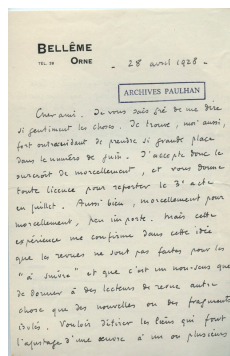 BELLÊME
TEL. 26 ORNE
- 28 avril 1928 -
ARCHIVES PAULHAN
Cher ami. Je vous sais gré de me dire
si gentiment les choses. Je trouve, moi aussi,
fort outrecuidant de prendre si grande place
dans le numéro de juin. J'accepte donc le
surcroît de morcellement, et vous donne
toute licence pour reporter le 3e acte
en juillet. Aussi bien, morcellement pour
morcellement, peu importe. Mais cette
expérience me confirme dans cette idée
que les revues ne sont pas faites pour les
"à suivre" et que c'est un non-sens que
de donner à des lecteurs de revue autre
chose que des nouvelles ou des fragments
isolés. Vouloir les liens qui font
l'ajustage d'une œuvre à un ou plusieurs